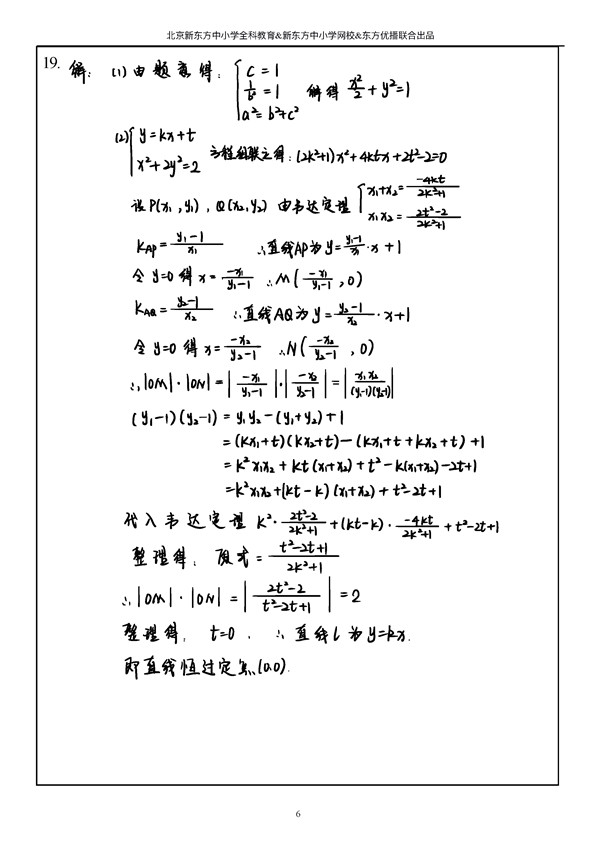 北京新东方中小学全科教育&新东方中小学网校&东方优播联合出品
19. 解: (1) 由题意得: { c=1, 1/b²=1, a²=b²+c² 解得 x²/2+y²=1
(2) { y=kx+t, x²+2y²=2 方程组联立得: (2k²+1)x²+4ktx+2t²-2=0
设P(x₁,y₁), Q(x₂,y₂) 由韦达定理 { x₁+x₂=-4kt/2k²+1, x₁x₂=2t²-2/2k²+1
K_AP=y₁-1/x₁ ∴直线AP为y=y₁-1/x₁·x+1
令y=0得x=-x₁/y₁-1 ∴M(-x₁/y₁-1, 0)
K_AQ=y₂-1/x₂ ∴直线AQ为y=y₂-1/x₂·x+1
令y=0得x=-x₂/y₂-1 ∴N(-x₂/y₂-1, 0)
∴|OM|·|ON|=|-x₁/y₁-1|·|-x₂/y₂-1|=|x₁x₂/(y₁-1)(y₂-1)|
(y₁-1)(y₂-1)=y₁y₂-(y₁+y₂)+1
=(kx₁+t)(kx₂+t)-(kx₁+t+kx₂+t)+1
=k²x₁x₂+kt(x₁+x₂)+t²-k(x₁+x₂)-2t+1
=k²x₁x₂+(kt-k)(x₁+x₂)+t²-2t+1
代入韦达定理 k²·2t²-2/2k²+1+(kt-k)·-4kt/2k²+1+t²-2t+1
整理得, 原式=t²-2t+1/2k²+1
∴|OM|·|ON|=|2t²-2/t²-2t+1|=2
整理得, t=0, ∴直线l为y=kx.
即直线恒过定点(0,0).
6